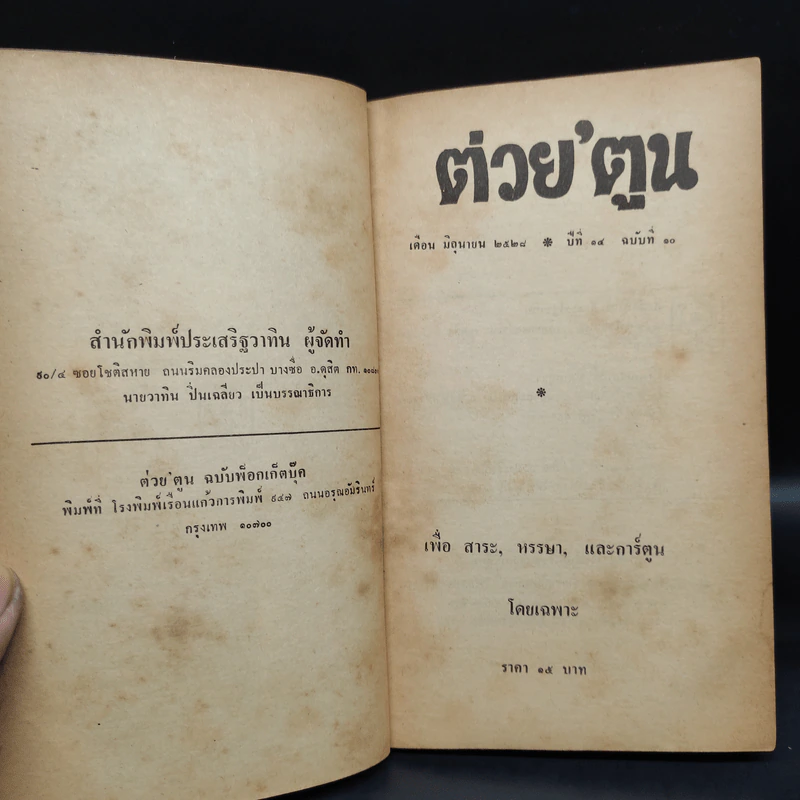 สำนักพิมพ์ประเสริฐวาทิน ผู้จัดทำ
๕๐/๔ ซอยโชติสหาย ถนนริมคลองประปา บางซื่อ อ.ดุสิต กท.
นายวาทิน ปิ่นเฉลียว เป็นบรรณาธิการ
ต่วย'ตูน ฉบับพ็อกเก็ตบุ๊ค
พิมพ์ที่ โรงพิมพ์เรือนแก้วการพิมพ์ ๙๔๗ ถนนอรุณอัมรินทร์
กรุงเทพ ๑๐๗๐๐
ต่วย'ตูน
เดือน มิถุนายน ๒๕๒๘ ❋ ปีที่ ๑๔ ฉบับที่ ๑๐
❋
เพื่อ สาระ, หรรษา, และการ์ตูน
โดยเฉพาะ
ราคา ๑๕ บาท